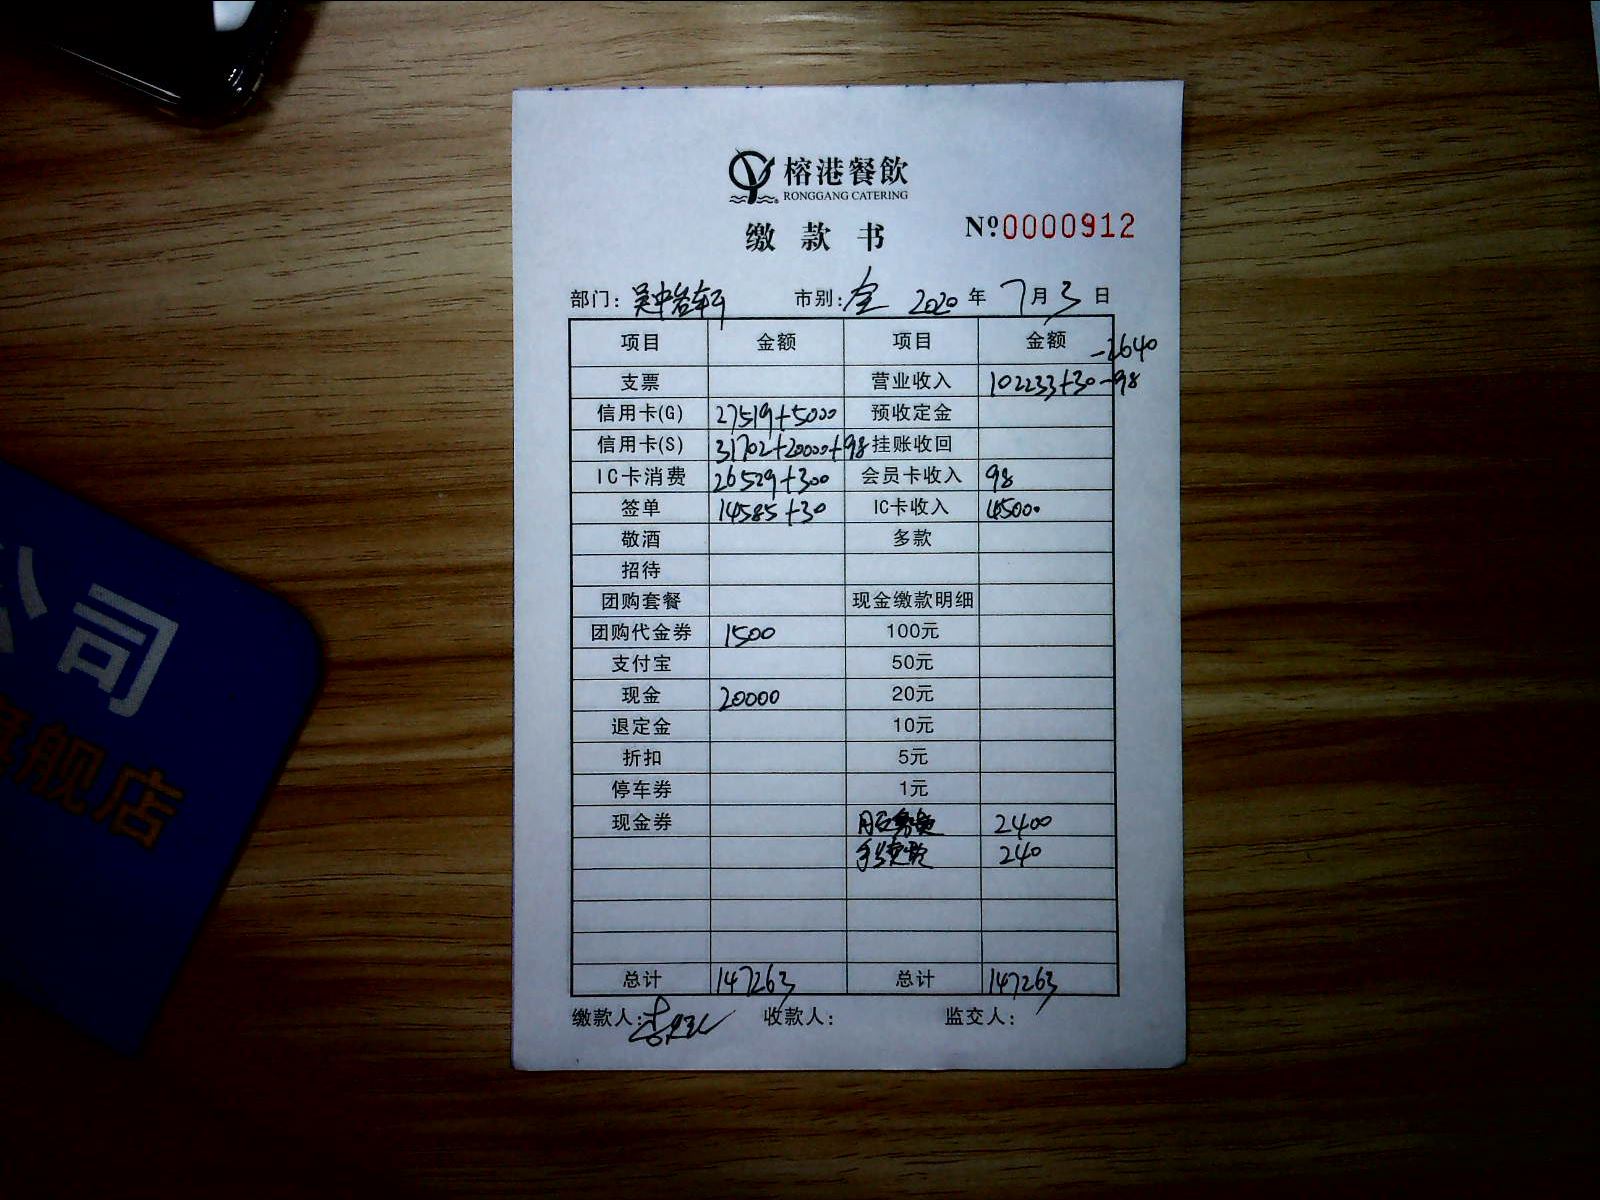 公司
旗舰店
榕港餐飲
RONGGANG CATERING
缴 款 书 Nº0000912
部门: 市别:全 2020年7月3日
项目 金额 项目 金额 -2640
支票 营业收入 102233+30-98
信用卡(G) 27519+5000 预收定金
信用卡(S) 31702+20000+98 挂账收回
IC卡消费 26529+300 会员卡收入 98
签单 14585+30 IC卡收入 45000
敬酒 多款
招待
团购套餐 现金缴款明细
团购代金券 1500 100元
支付宝 50元
现金 20000 20元
退定金 10元
折扣 5元
停车券 1元
现金券 服务费 2400
手续费 240
总计 147263 总计 147263
缴款人: 收款人: 监交人: